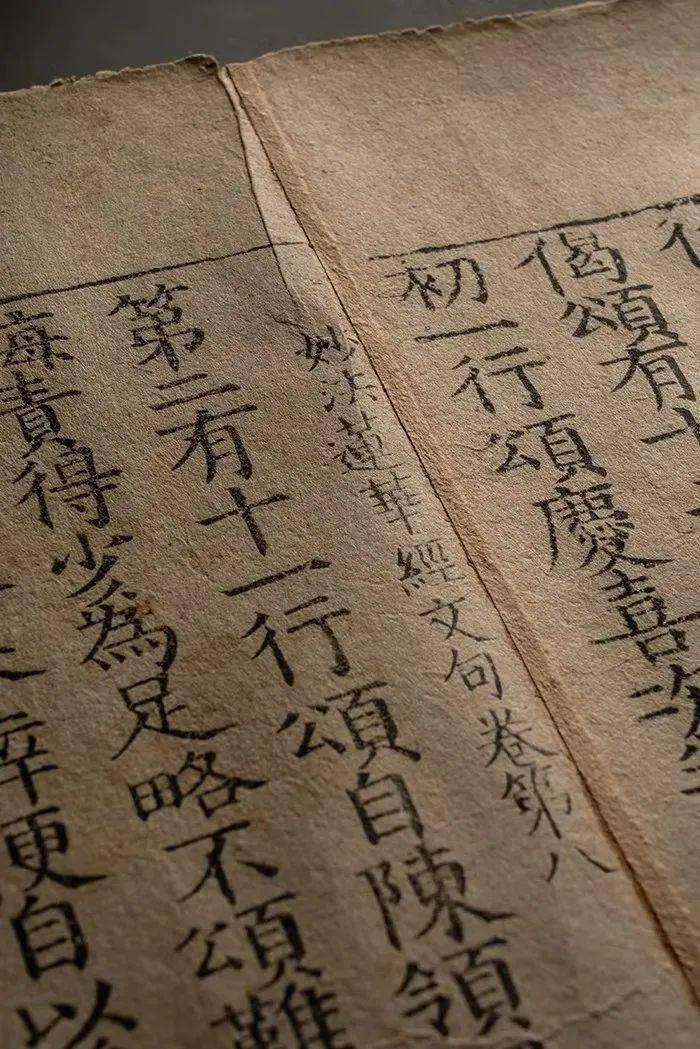 偈頌有十
初一行頌慶喜次
妙法蓮華經文句卷第八
第二有十一行頌自陳領
悔責得少為足略不頌難
幸更自